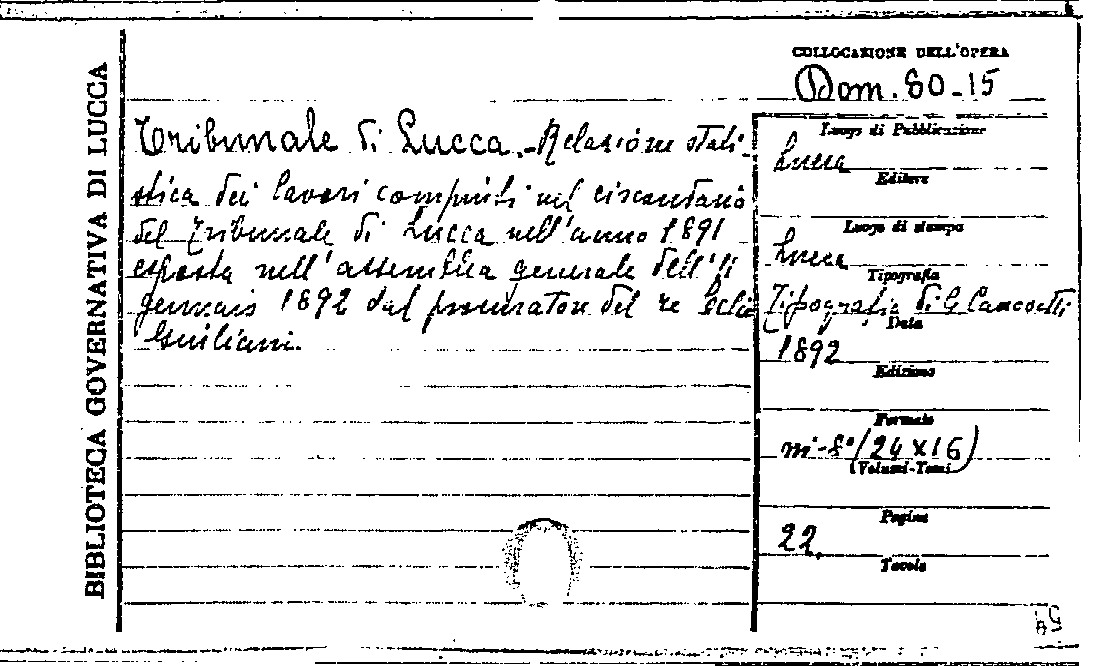 BIBLIOTECA GOVERNATIVA DI LUCCA
COLLOCAZIONE DELL'OPERA
Dom. 80-15
Tribunale di Lucca. - Relazione stati-
stica dei lavori compiuti nel circondario
del Tribunale di Lucca nell'anno 1891
esposta nell'assemblea generale dell'11
gennaio 1892 dal procuratore del re
Giuliani.
Luogo di Pubblicazione
Lucca
Editore
Luogo di stampa
Lucca
Tipografia
Tipografia di G. Canovetti
Data
1892
Edizione
Formato
in-8° (24 X 16)
(Volumi-Tomi
Pagine
22.
Tavole